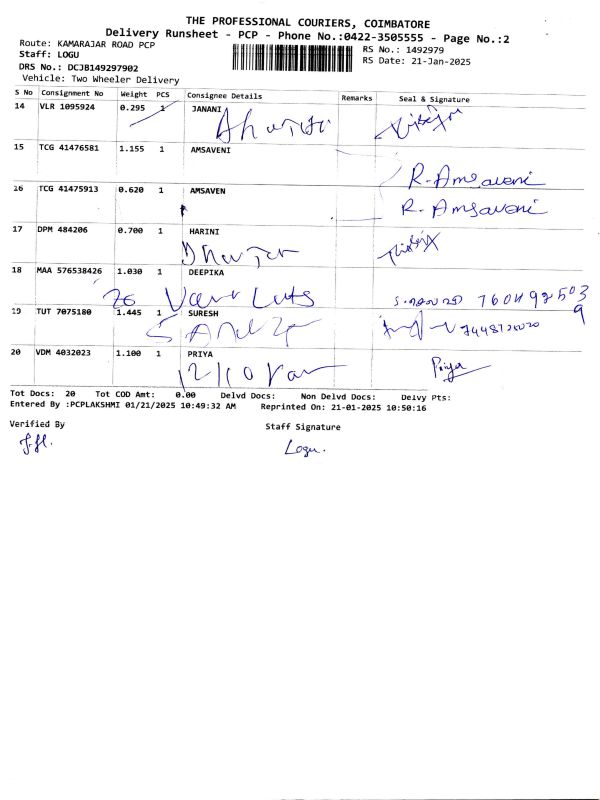 THE PROFESSIONAL COURIERS, COIMBATORE
Delivery Runsheet - PCP - Phone No.:0422-3505555 - Page No.:2
Route: KAMARAJAR ROAD PCP RS No.: 1492979
Staff: LOGU RS Date: 21-Jan-2025
DRS No.: DCJB149297902
Vehicle: Two Wheeler Delivery
S No Consignment No Weight PCS Consignee Details Remarks Seal & Signature
14 VLR 1095924 0.295 1 JANANI
15 TCG 41476581 1.155 1 AMSAVENI
R. Amsaveni
16 TCG 41475913 0.620 1 AMSAVEN
R. Amsaveni
17 DPM 484206 0.700 1 HARINI
18 MAA 576538426 1.030 1 DEEPIKA
26
19 TUT 7075180 1.445 1 SURESH
20 VDM 4032023 1.100 1 PRIYA
Priya
Tot Docs: 20 Tot COD Amt: 0.00 Delvd Docs: Non Delvd Docs: Delvy Pts:
Entered By :PCPLAKSHMI 01/21/2025 10:49:32 AM Reprinted On: 21-01-2025 10:50:16
Verified By Staff Signature
Logu.